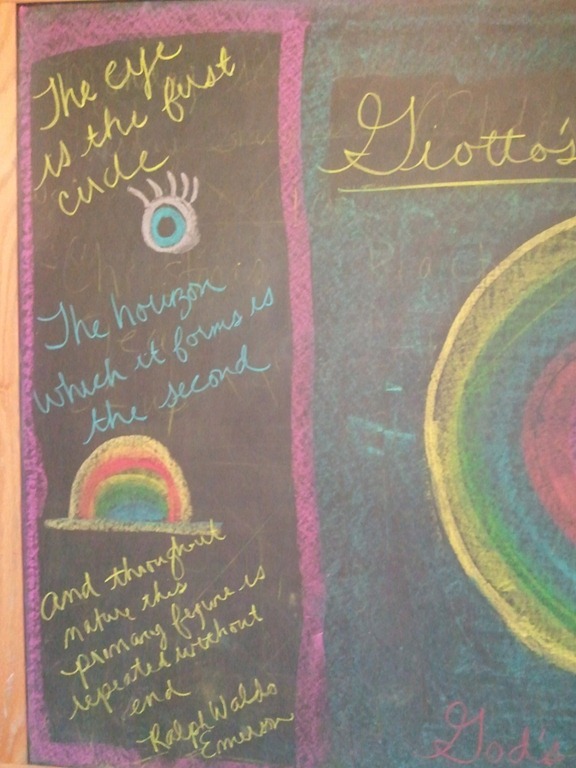 The eye
is the first
circle
The horizon
which it forms is
the second
and throughout
nature this
primary figure is
repeated without
end
Ralph Waldo
Emerson
Giotto's
God's